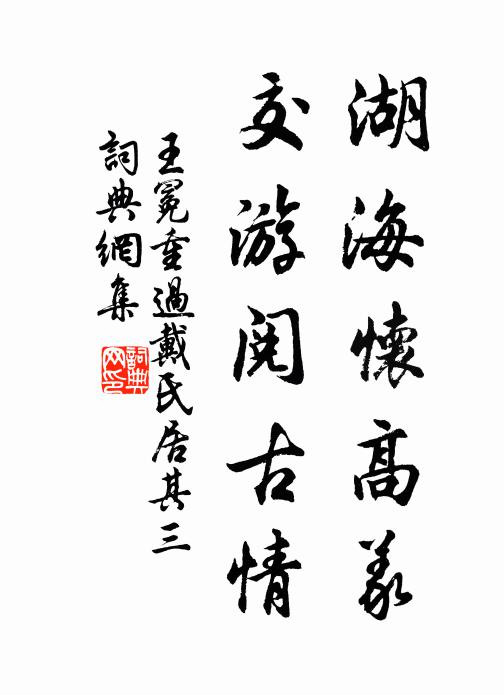 湖海懷高義
交游閱古情
王冕重過戴氏居其三
詞典網集
詞典网印